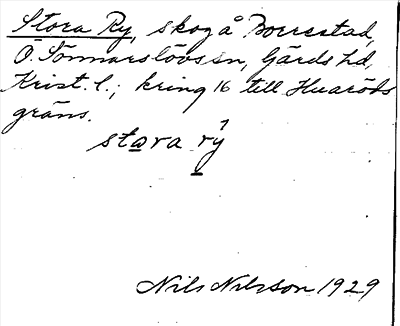 Stora Ry, skog å Borrestad,
Ö. Sönnarslövs sn, Gärds hd,
Krist. l.; kring 16 till Huaröds
gräns.
stora rý
Nils Nilsson 1929